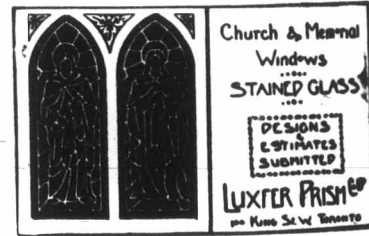 Church & Memorial
Windows
STAINED GLASS
DESIGNS
&
ESTIMATES
SUBMITTED
LUXFER PRISM Co
100 KING ST. W. TORONTO